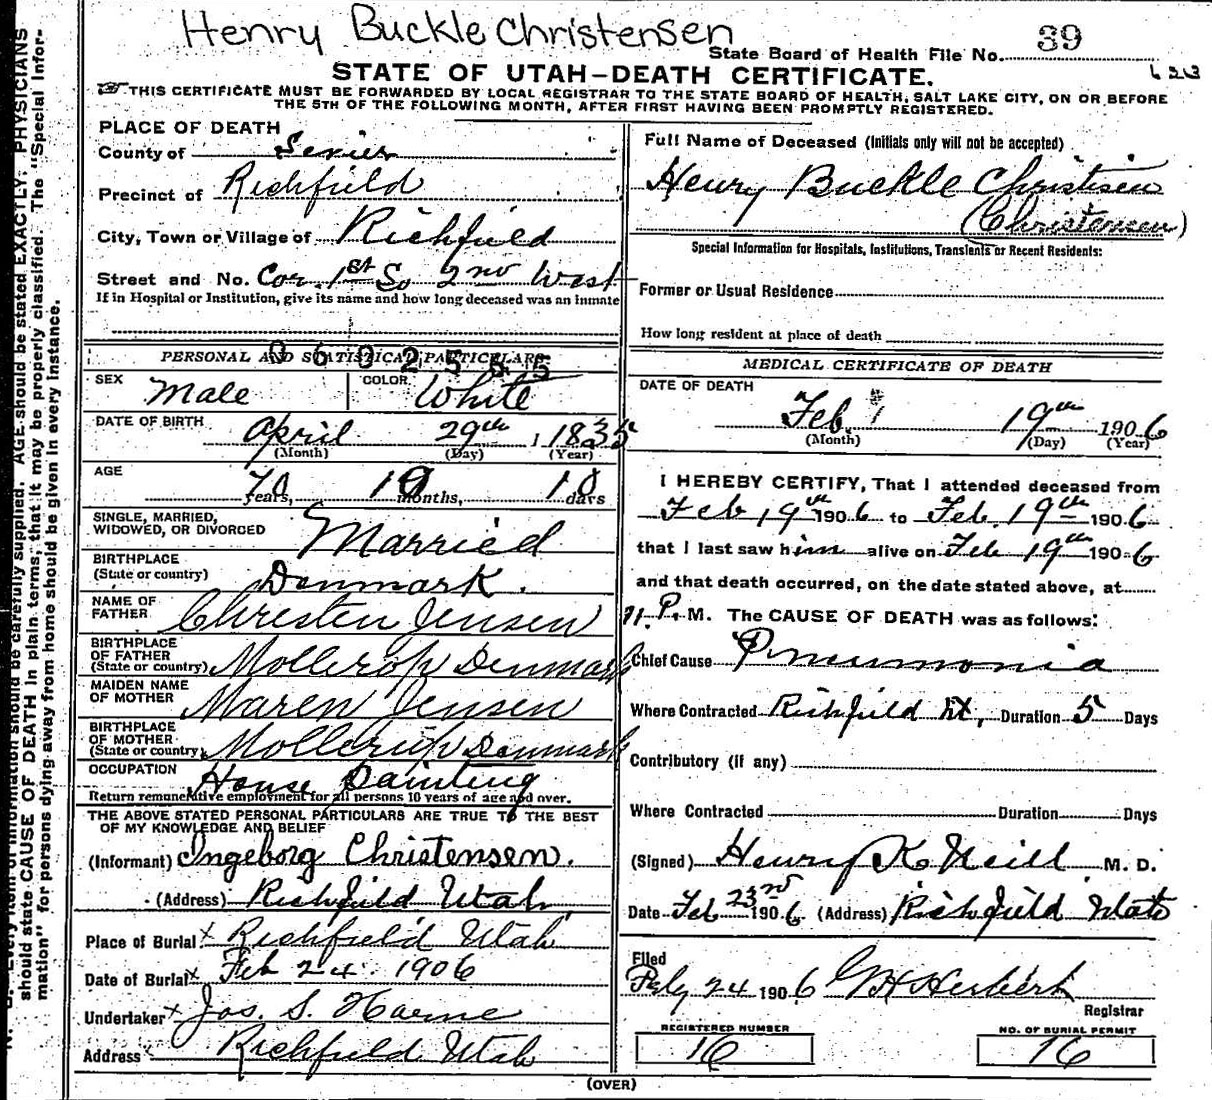 Henry Buckle Christensen
State Board of Health File No. 39
STATE OF UTAH—DEATH CERTIFICATE.
THIS CERTIFICATE MUST BE FORWARDED BY LOCAL REGISTRAR TO THE STATE BOARD OF HEALTH, SALT LAKE CITY, ON OR BEFORE
THE 5TH OF THE FOLLOWING MONTH, AFTER FIRST HAVING BEEN PROMPTLY REGISTERED.
PLACE OF DEATH
County of Sevier
Precinct of Richfield
City, Town or Village of Richfield
Street and No. Cor. 1st So 2nd West
If in Hospital or Institution, give its name and how long deceased was an inmate
PERSONAL AND STATISTICAL PARTICULARS
SEX Male COLOR. White
DATE OF BIRTH April 29th, 1835
(Month) (Day) (Year)
AGE 70 years, 10 months, 10 days
SINGLE, MARRIED,
WIDOWED, OR DIVORCED Married
BIRTHPLACE
(State or country) Denmark.
NAME OF
FATHER Christen Jensen
BIRTHPLACE
OF FATHER
(State or country) Mollerop Denmark
MAIDEN NAME
OF MOTHER Maren Jensen
BIRTHPLACE
OF MOTHER
(State or country) Mollerup Denmark
OCCUPATION House Painting
Return remunerative employment for all persons 10 years of age and over.
THE ABOVE STATED PERSONAL PARTICULARS ARE TRUE TO THE BEST
OF MY KNOWLEDGE AND BELIEF
(Informant) Ingeborg Christensen.
(Address) Richfield Utah
Place of Burial x Richfield Utah
Date of Burial x Feb 24. 1906
Undertaker x Jos. S. Horne
Address x Richfield Utah
Full Name of Deceased (Initials only will not be accepted)
Henry Buckle Christisen
(Christensen)
Special Information for Hospitals, Institutions, Transients or Recent Residents:
Former or Usual Residence
How long resident at place of death
MEDICAL CERTIFICATE OF DEATH
DATE OF DEATH
Feb. 19th 1906
(Month) (Day) (Year)
I HEREBY CERTIFY, That I attended deceased from
Feb 19th 1906 to Feb. 19th 1906
that I last saw him alive on Feb 19th 1906
and that death occurred, on the date stated above, at
11. P. M. The CAUSE OF DEATH was as follows:
Chief Cause Pneumonia
Where Contracted Richfield Ut, Duration 5 Days
Contributory (if any)
Where Contracted Duration Days
(Signed) Henry K Neill M. D.
Date Feb 23nd 1906 (Address) Richfield Utah
Filed
Feby 24 1906 Herbert
Registrar
REGISTERED NUMBER NO. OF BURIAL PERMIT
16 16
(OVER)
Every item of information should be carefully supplied. AGE should be stated EXACTLY. PHYSICIANS
should state CAUSE OF DEATH in plain terms, that it may be properly classified. The "Special Infor-
mation" for persons dying away from home should be given in every instance.